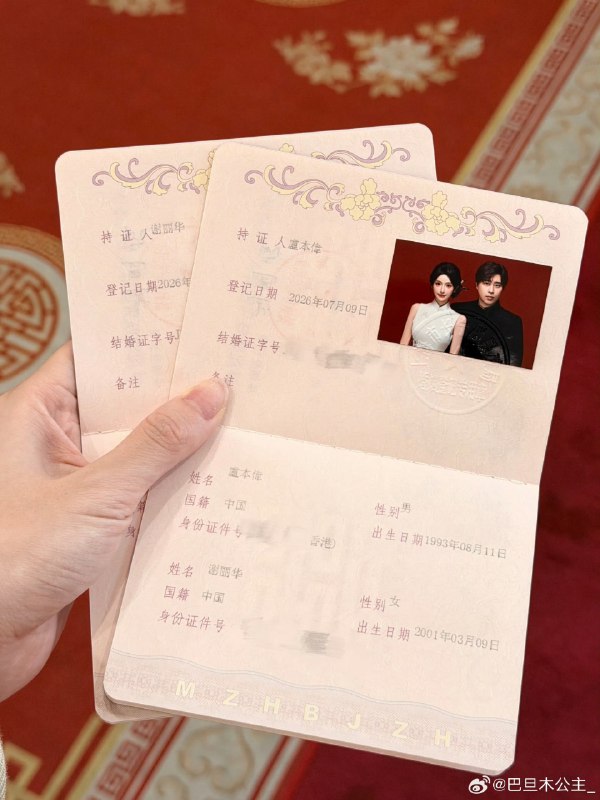 持证人 谢丽华
登记日期 2026年
结婚证字号
备注
持证人 卢本伟
登记日期 2026年07月09日
结婚证字号
备注
姓名 卢本伟
性别 男
国籍 中国
出生日期 1993年08月11日
身份证件号 香港)
姓名 谢丽华
性别 女
国籍 中国
出生日期 2001年03月09日
身份证件号
MZHBJZH
@巴旦木公主_